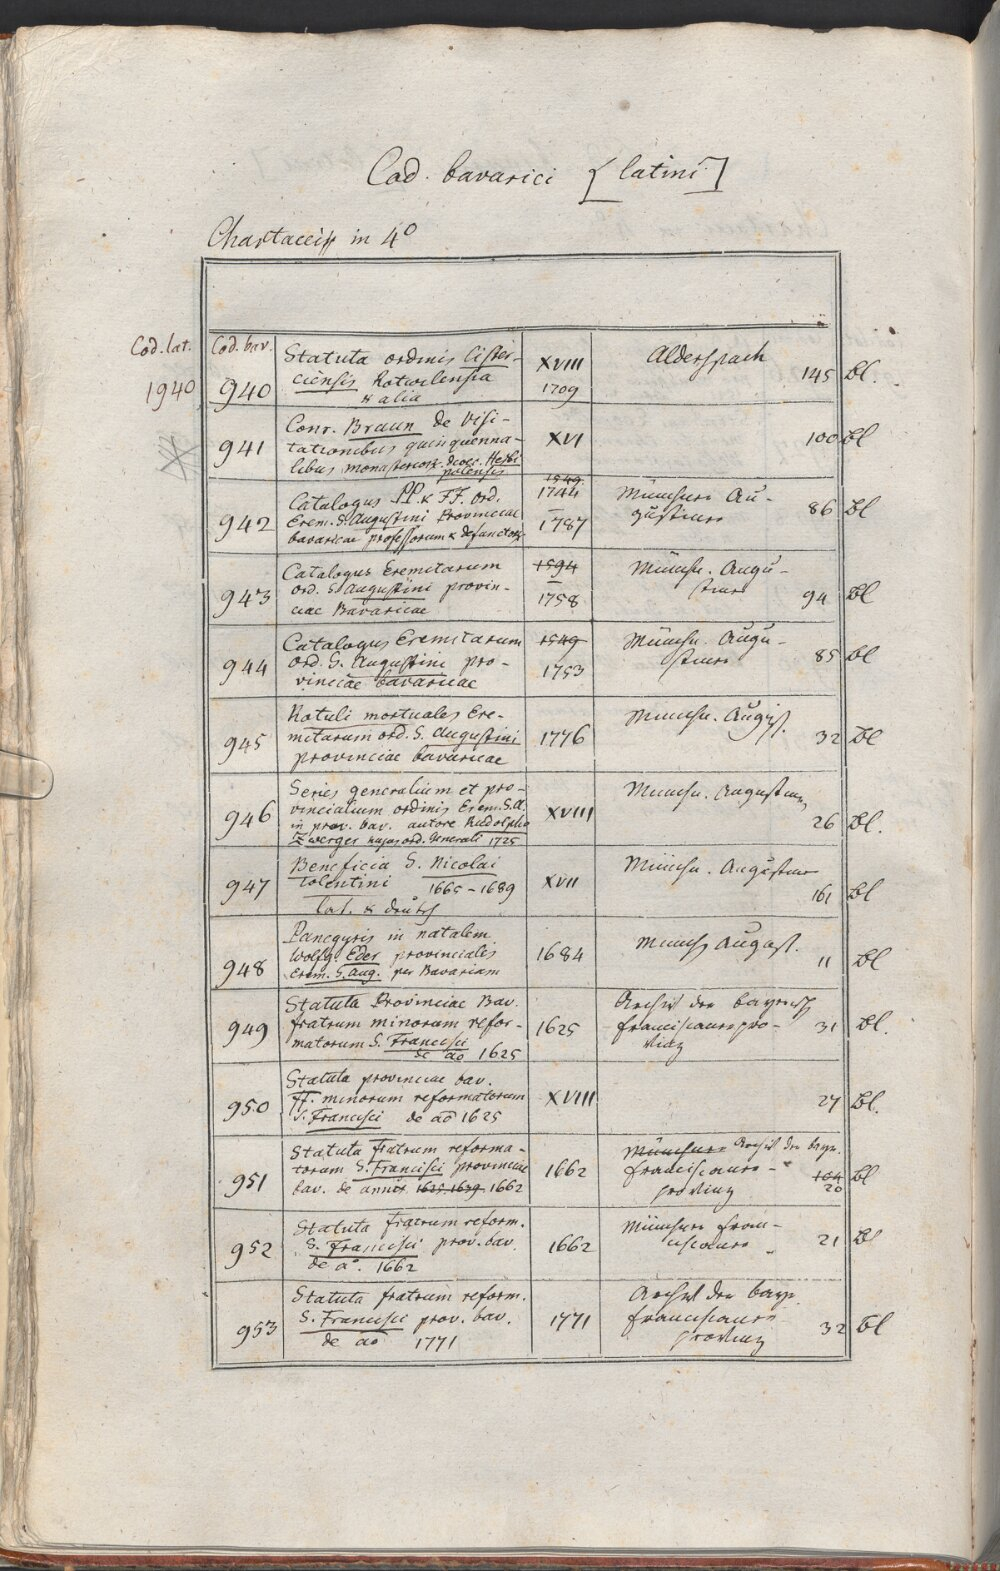 Cod. bavarici [latini]
Chartacei in 4°
Cod. lat. Cod. bav.
1940 940 Statuta ordinis Cister-
ciensis Rotwilensia
& alia
XVIII
1709
Alderspach
145 Bl.
941 Conr. Braun de Visi-
tationibus quinquenna-
libus monasterior. dioec. Herbi
polensis
XVI
100 Bl
942 Catalogus PP. & FF. Ord.
Erem. S. Augustini Provinciae
bavaricae professorum & defunctor.
1549.
1744
–
1787
Münchner Au-
gustiner
86 Bl
943 Catalogus Eremitarum
ord. S. Augustini provin-
ciae Bavaricae
1594
–
1758
Münchn. Augu-
stiner
94 Bl
944 Catalogus Eremitarum
ord. S. Augustini pro-
vinciae bavaricae
1549
–
1753
Münchn. Augu-
stiner
85 Bl
945 Rotuli mortuales Ere-
mitarum ord. S. Augustini
provinciae bavaricae
1776
Münchn. August.
32 Bl
946 Series generalium et pro-
vincialium ordinis Erem. S. A.
in prov. bav. autore Rudolpho
Zwerger hujus ord. Generali 1725
XVIII
Münchn. Augustiner
26 Bl.
947 Beneficia S. Nicolai
Tolentini 1665–1689
lat. & deutsch
XVII
Münchn. Augustiner
161 Bl
948 Panegyris in natalem
Wolfg. Eder provincialis
Erem. S. Aug. per Bavariam
1684
Münch August.
11 Bl
949 Statuta Provinciae Bav.
fratrum minorum refor-
matorum S. Francisci
de ao 1625
1625
Archiv der bayrisch
franciscaner pro-
vinz
31 Bl.
950 Statuta provinciae bav.
FF. minorum reformatorum
S. Francisci de ao 1625
XVIII
27 Bl.
951 Statuta fratrum reforma-
torum S. Francisci provinciae
bav. de annis 1625. 1639. 1662
1662
Münchner Archiv der bayr.
franciscaner-
provinz
104
20 Bl
952 Statuta fratrum reform.
S. Francisci prov. bav.
de a°. 1662
1662
Münchner Fran-
ciscaner
21 Bl
953 Statuta fratrum reform.
S. Francisci prov. bav.
de ao 1771
1771
Archiv der bayr.
franciscaner
provinz
32 Bl